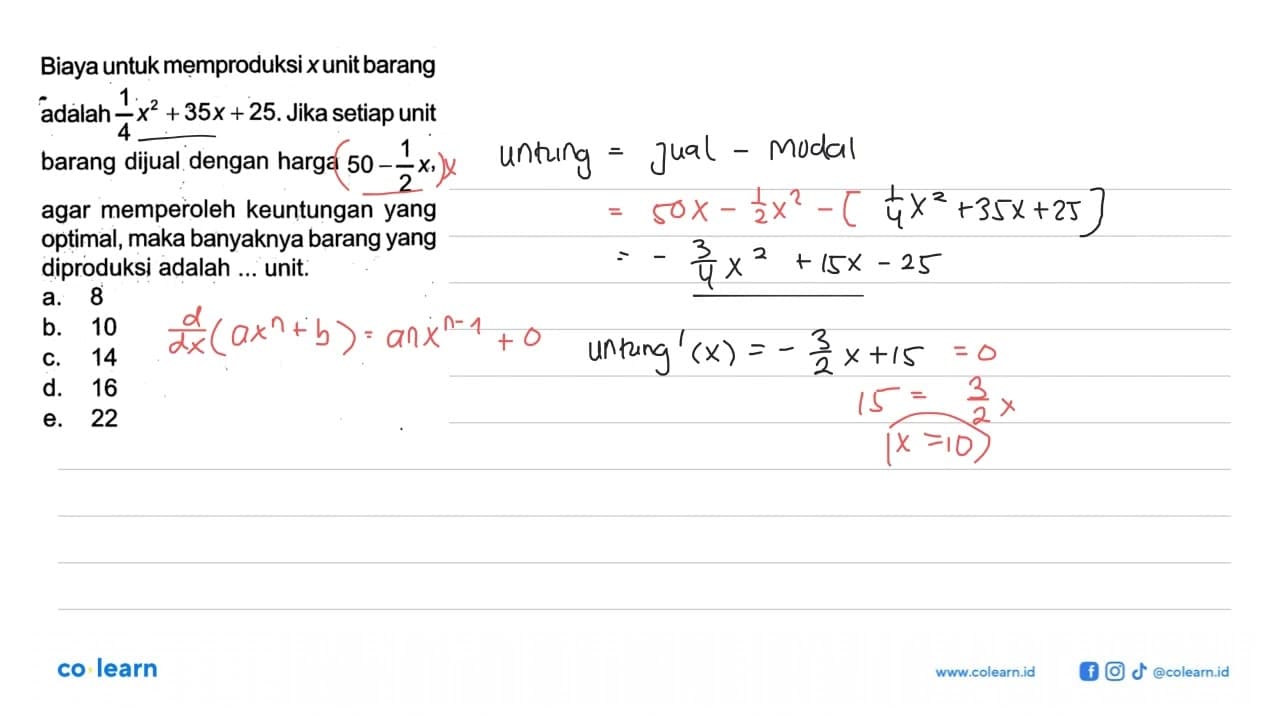 Biaya untuk memproduksi x unit barang
adalah 1/4 x² + 35x + 25. Jika setiap unit
barang dijual dengan harga (50 - 1/2 x,)x
agar memperoleh keuntungan yang
optimal, maka banyaknya barang yang
diproduksi adalah ... unit.
a. 8
b. 10
c. 14
d. 16
e. 22
d/dx (axⁿ + b) = anxⁿ⁻¹ + 0
untung = jual - modal
= 50x - 1/2 x² - [ 1/4 x² + 35x + 25 ]
= - 3/4 x² + 15x - 25
untung'(x) = - 3/2 x + 15 = 0
15 = 3/2 x
(x = 10)
co learn
www.colearn.id
@colearn.id